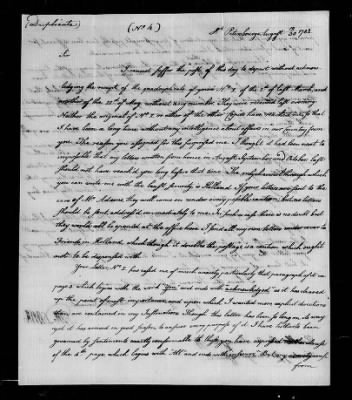 (Duplicate)
(No. 4)
St. Petersbourg Augst 30 1782
Sir
I cannot suffer the post of this day to depart without acknow
ledging the receipt of the quadruplicate of yours No. of the 2d of last March, and
another of the 22d of May without any number. They were received last evening
Neither the original of No. 2 or either of the other Copies
I have been a long time without any intelligence about affairs in our Country from
you. The reason you assigned for this surprised me. I thought it had been next to
impossible that my letters written from hence in August September and October last
should not have reached you long before that time. The safest channel through which
you can write me with the least jeopardy is Holland. If your letters are sent to the
care of Mr. Adams they will come on under They
should be first address'd immediately to me. In such a case there is no doubt but
they would all be opened at the office here. I send all my own letters under cover to
Friends in Holland, which though it doubles the postage is a caution which ought
not to be dispensed with.
Your letter No. 2 has eased me of much anxiety particularly that paragraph of it in
page which begins with the word "You" and ends with acknowledged, as it has cleared
up the point of most importance, and upon which I wanted more explicit directions
are contained in my Instructions. Though this letter has been so long on its way
yet it has arrived in good season, to answer every purpose of it. I have hitherto been
governed by sentiments exactly conformable to those you have expressed in the clause
of the 4th page which begins with All and ends with
from